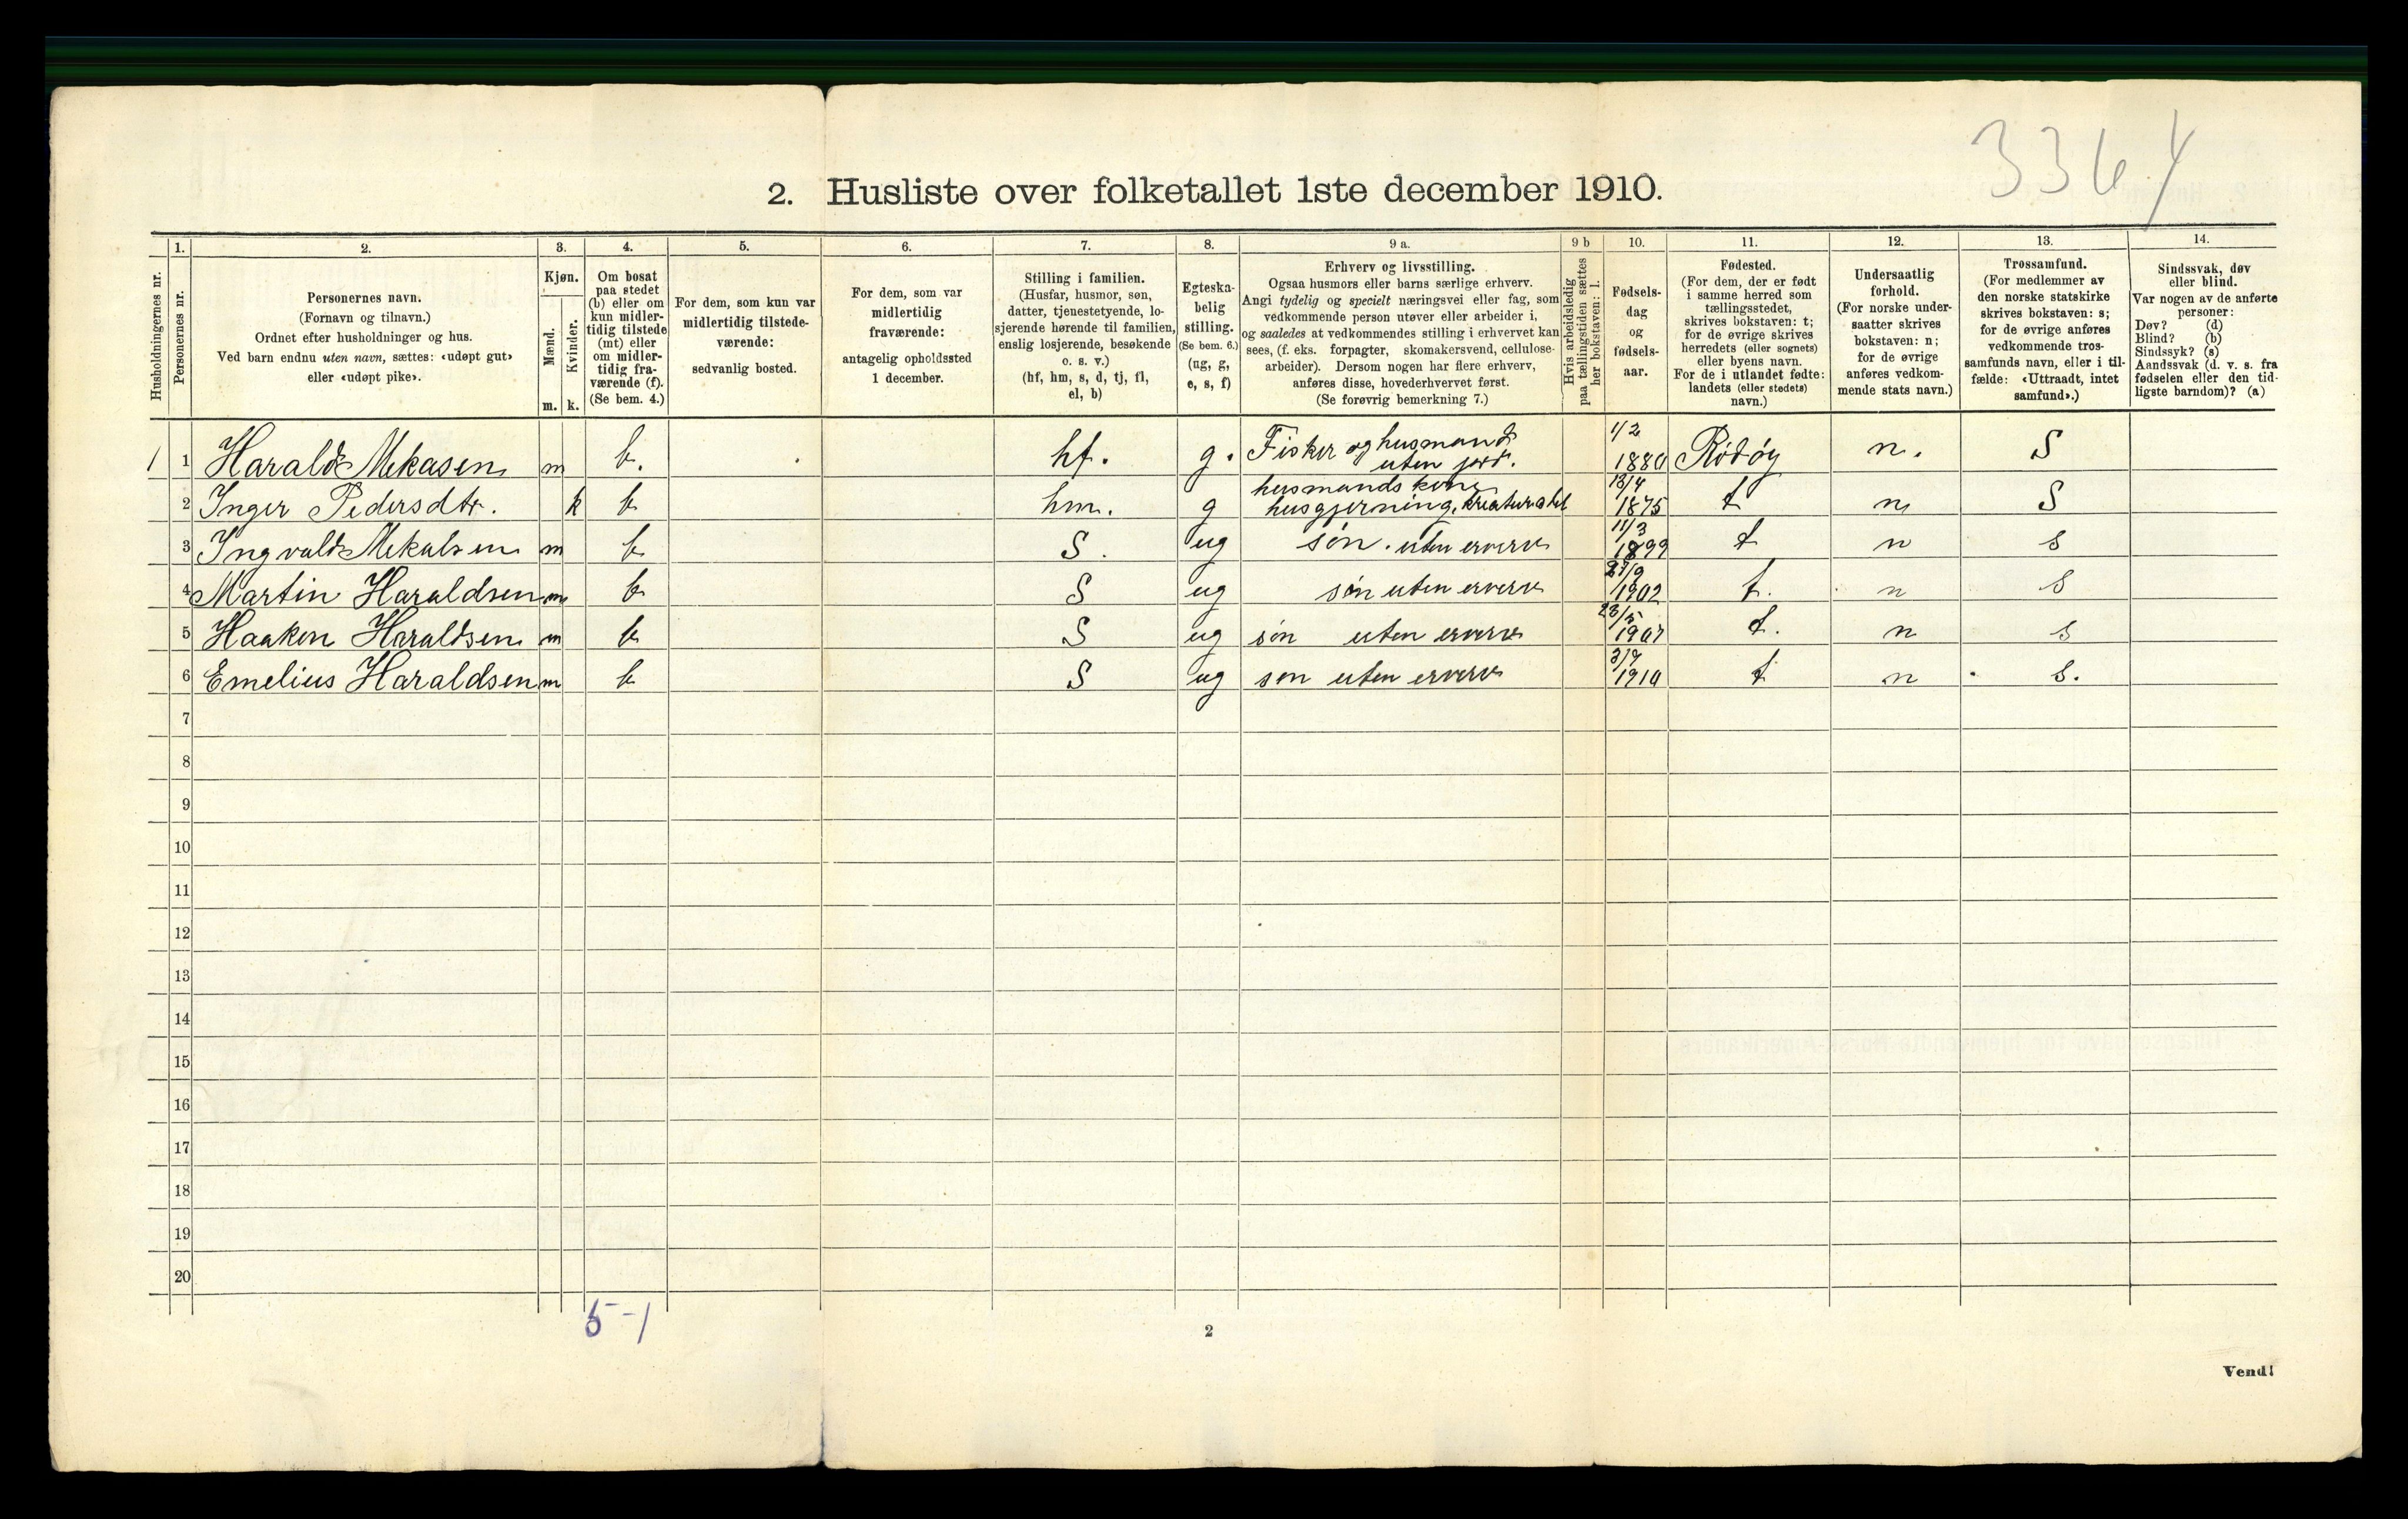 3364
2. Husliste over folketallet 1ste december 1910.
Husholdningernes nr.
1.
Personernes nr.
2.
Personernes navn.
(Fornavn og tilnavn.)
Ordnet efter husholdninger og hus.
Ved barn endnu uten navn, sættes: «udøpt gut»
eller «udøpt pike».
3.
Kjøn.
Mænd.
Kvinder.
m. k.
4.
Om bosat
paa stedet
(b) eller om
kun midler-
tidig tilstede
(mt) eller
om midler-
tidig fra-
værende (f).
(Se bem. 4.)
5.
For dem, som kun var
midlertidig tilstede-
værende:
sedvanlig bosted.
6.
For dem, som var
midlertidig
fraværende:
antagelig opholdssted
1 december.
7.
Stilling i familien.
(Husfar, husmor, søn,
datter, tjenestetyende, lo-
sjerende hørende til familien,
enslig losjerende, besøkende
o. s. v.)
(hf, hm, s, d, tj, fl,
el, b)
8.
Egteska-
belig
stilling.
(Se bem. 6.)
(ug, g,
e, s, f)
9 a.
Erhverv og livsstilling.
Ogsaa husmors eller barns særlige erhverv.
Angi tydelig og specielt næringsvei eller fag, som
vedkommende person utøver eller arbeider i,
og saaledes at vedkommendes stilling i erhvervet kan
sees, (f. eks. forpagter, skomakersvend, cellulose-
arbeider). Dersom nogen har flere erhverv,
anføres disse, hovederhvervet først.
(Se forøvrig bemerkning 7.)
9 b
Hvis arbeidsledig
paa tællingstiden sættes
her bokstaven: l.
10.
Fødsels-
dag
og
fødsels-
aar.
11.
Fødested.
(For dem, der er født
i samme herred som
tællingsstedet,
skrives bokstaven: t;
for de øvrige skrives
herredets (eller sognets)
eller byens navn.
For de i utlandet fødte:
landets (eller stedets)
navn.)
12.
Undersaatlig
forhold.
(For norske under-
saatter skrives
bokstaven: n;
for de øvrige
anføres vedkom-
mende stats navn.)
13.
Trossamfund.
(For medlemmer av
den norske statskirke
skrives bokstaven: s;
for de øvrige anføres
vedkommende tros-
samfunds navn, eller i til-
fælde: «Uttraadt, intet
samfund».)
14.
Sindssvak, døv
eller blind.
Var nogen av de anførte
personer:
Døv? (d)
Blind? (b)
Sindssyk? (s)
Aandssvak (d. v. s. fra
fødselen eller den tid-
ligste barndom)? (a)
1 1 Harald Mekasen m b. hf. g. Fisker og husmand uten jord. 1/2 1880 Rödöy n. S
2 Inger Pedersdtr. k b hm. g husmands kone husgjerning, kreaturstel 13/4 1875 t n S
3 Ingvald Mekalsen m b S. ug søn. uten erverv 11/3 1899 t n s
4 Martin Haraldsen m b S ug søn uten erverv 27/9 1902 t. n s
5 Haakon Haraldsen m b S ug søn uten erverv 23/5 1907 t. n s
6 Emelius Haraldsen m b S ug søn uten erverv 3/9 1910 t n s.
7
8
9
10
11
12
13
14
15
16
17
18
19
20
5-1
2
Vend!